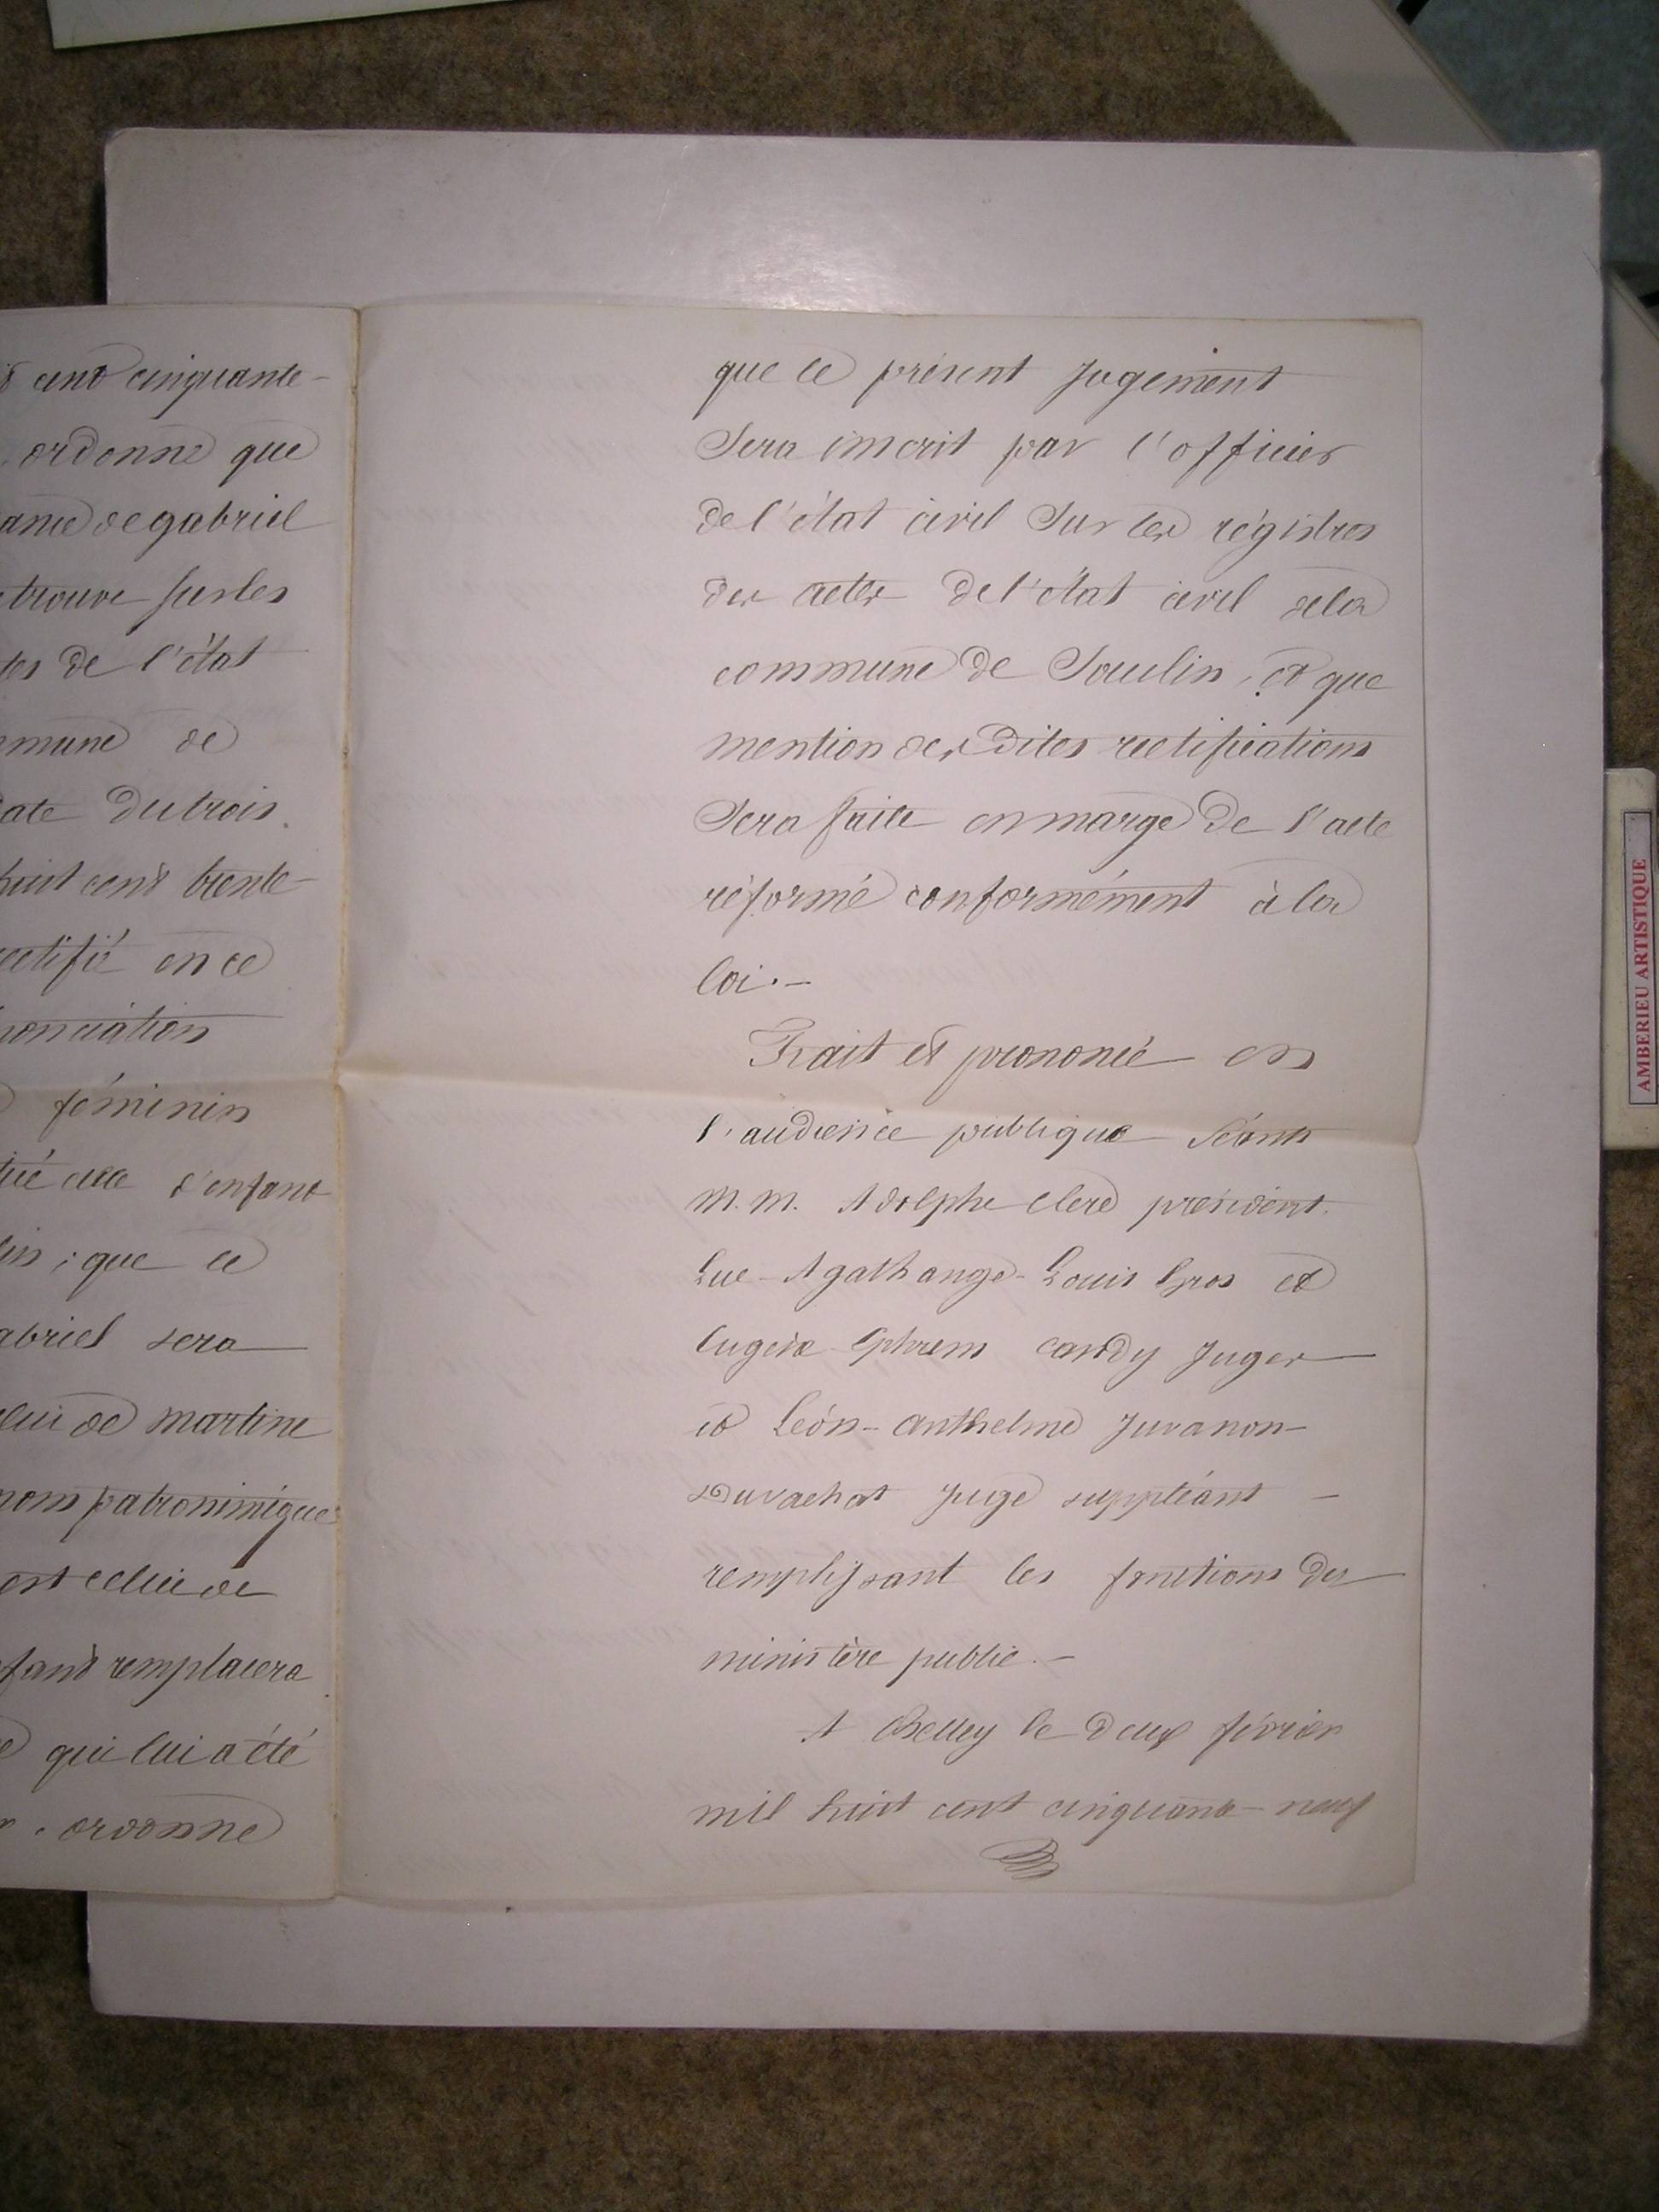 cent cinquante-
ordonne que
de gabriel
trouve sur les
de l'état
de
date du trois
huit cent trente-
rectifié en ce
féminin
l'enfant
; que le
gabriel sera
celui de martine
nom patronimique
est celui de
remplacera
qui lui a été
. ordonne
que le présent Jugement
Sera inscrit par l'officier
de l'état civil Sur les régistres
des actes de l'état civil dela
commune de Souclin, et que
mention des Dites rectifications
Sera faite en marge De l'acte
réformé conformément à la
loi.-
Fait et prononcé en
l'audience publique Séants
M.M. Adolphe Clerc président.
Luc-Agathange-Louis Gros et
Eugène Ephrem candy Juges
et Léon-anthelme Juvanon-
Duvachat Juge suppléant -
remplissant les fonctions du
ministère public.-
A Belley le Deux février
mil huit cent cinquante-neuf
AMBERIEU ARTISTIQUE